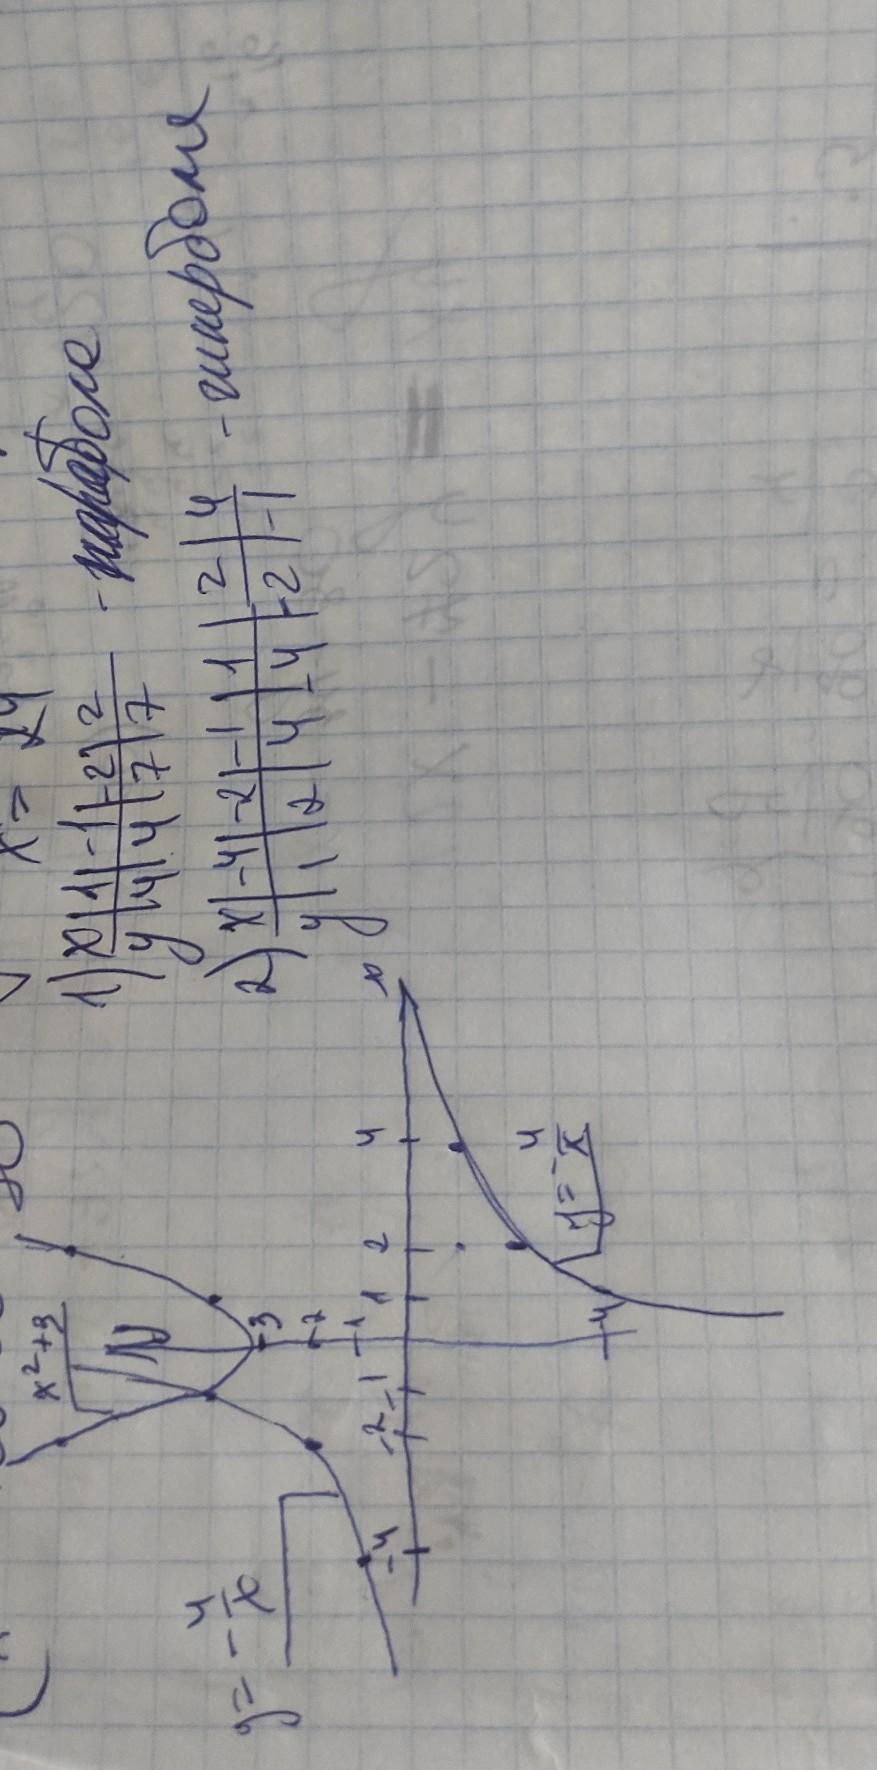 x = 24
1) x | 1 | -1 | -2 | 2
y | 4 | 4 | 7 | 7 - парабола
2) x | -4 | -2 | -1 | 1 | 2 | 4
y | 1 | 2 | 4 | -4 | -2 | -1 - гипербола
x²+3
y = -4/x
3
1
-4 -2 -1 1 2 4 x
-4
y = -4/x